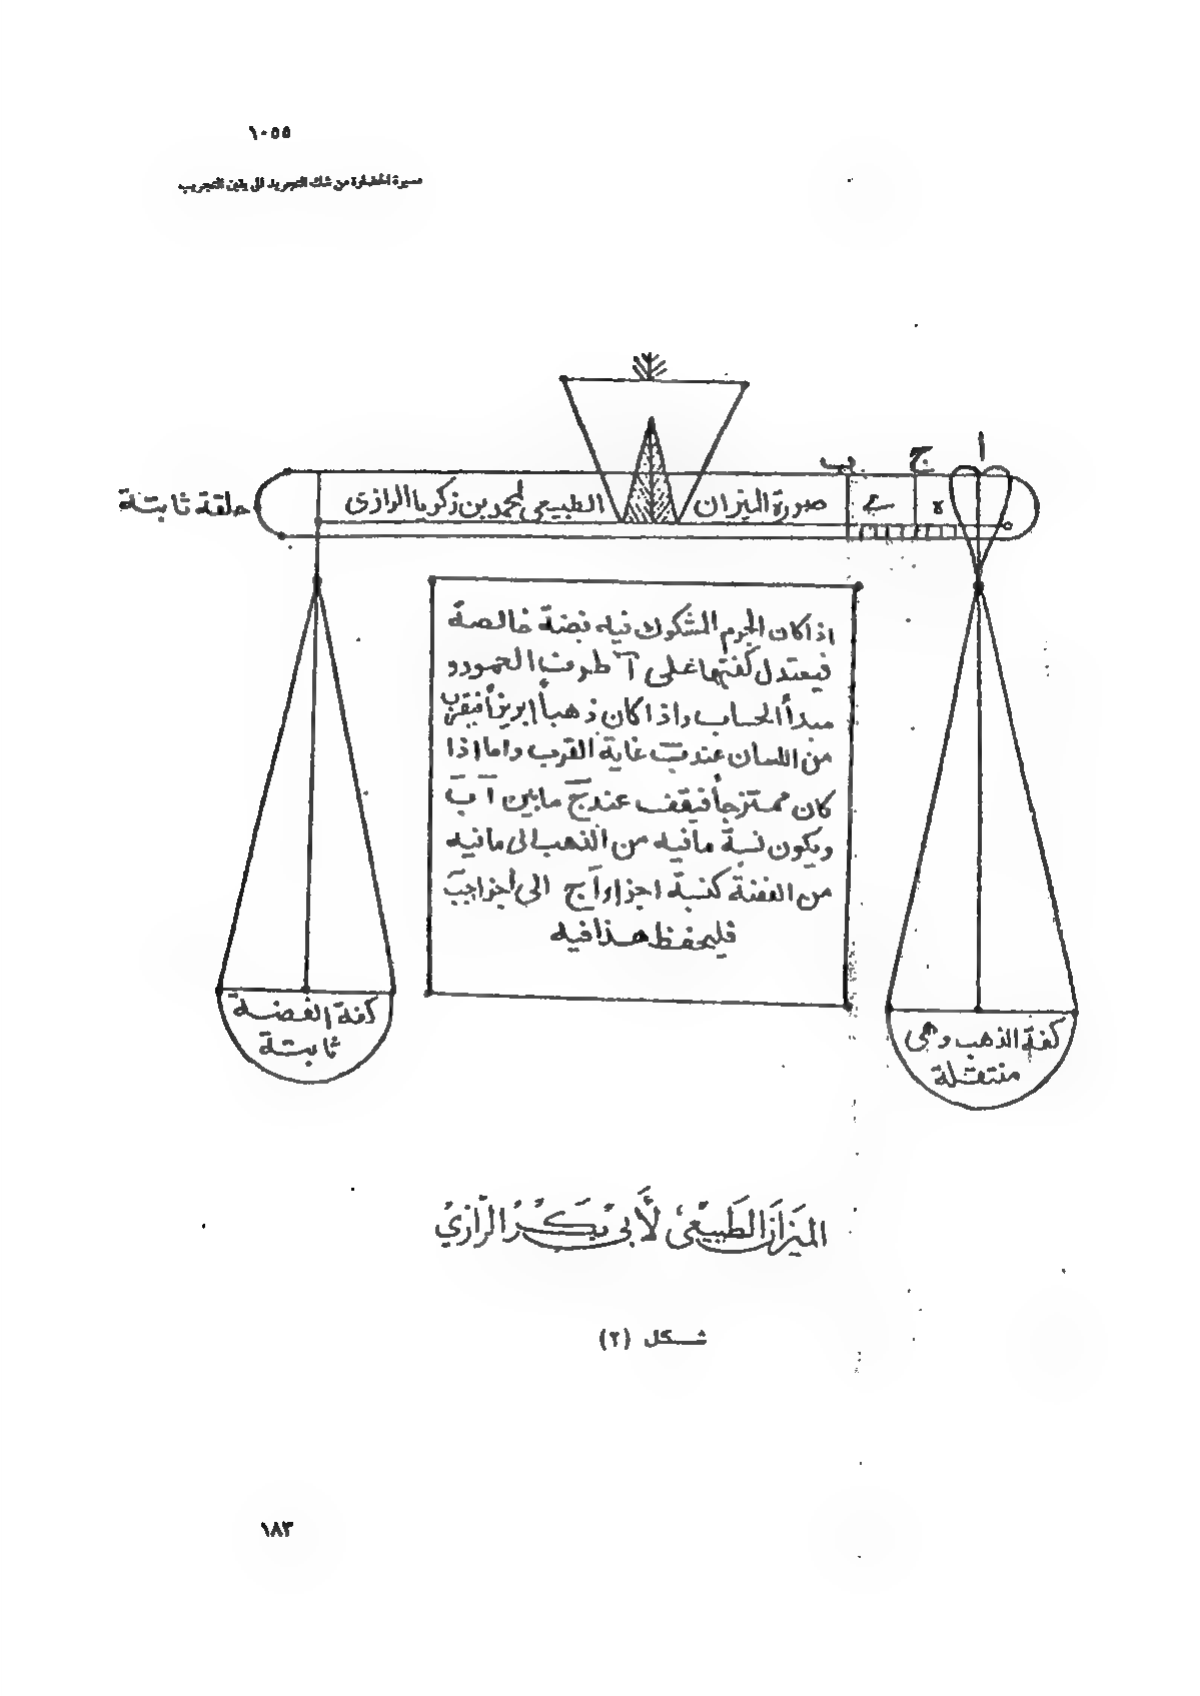 ١٠٥٥
مسيرة الحضارة من شك التجريد الى يقين التجريب
ا
ج
ب
حلقة ثابتة
صورة الميزان الطبيعى لمحمد بن زكريا الرازى
ه
اذا كان الجرم المشكوك فيه فضة خالصة
فيعتدل كفتها على آ طرف العمود و
مبدأ الحساب واذا كان ذهباً ابريزاً فيقرب
من اللسان عند ب غاية القرب واما اذا
كان ممتزجاً فيقف عند ج ما بين آ ب
ويكون نسبة ما فيه من الذهب الى ما فيه
من الفضة كنسبة اجزاء آج الى أجزا جب
فليحفظ هذا فيه
كفة الفضة
ثابتة
كفة الذهب وهى
منتقلة
الميزان الطبيعى لأبى بكر الرازي
شكل (٢)
١٨٣